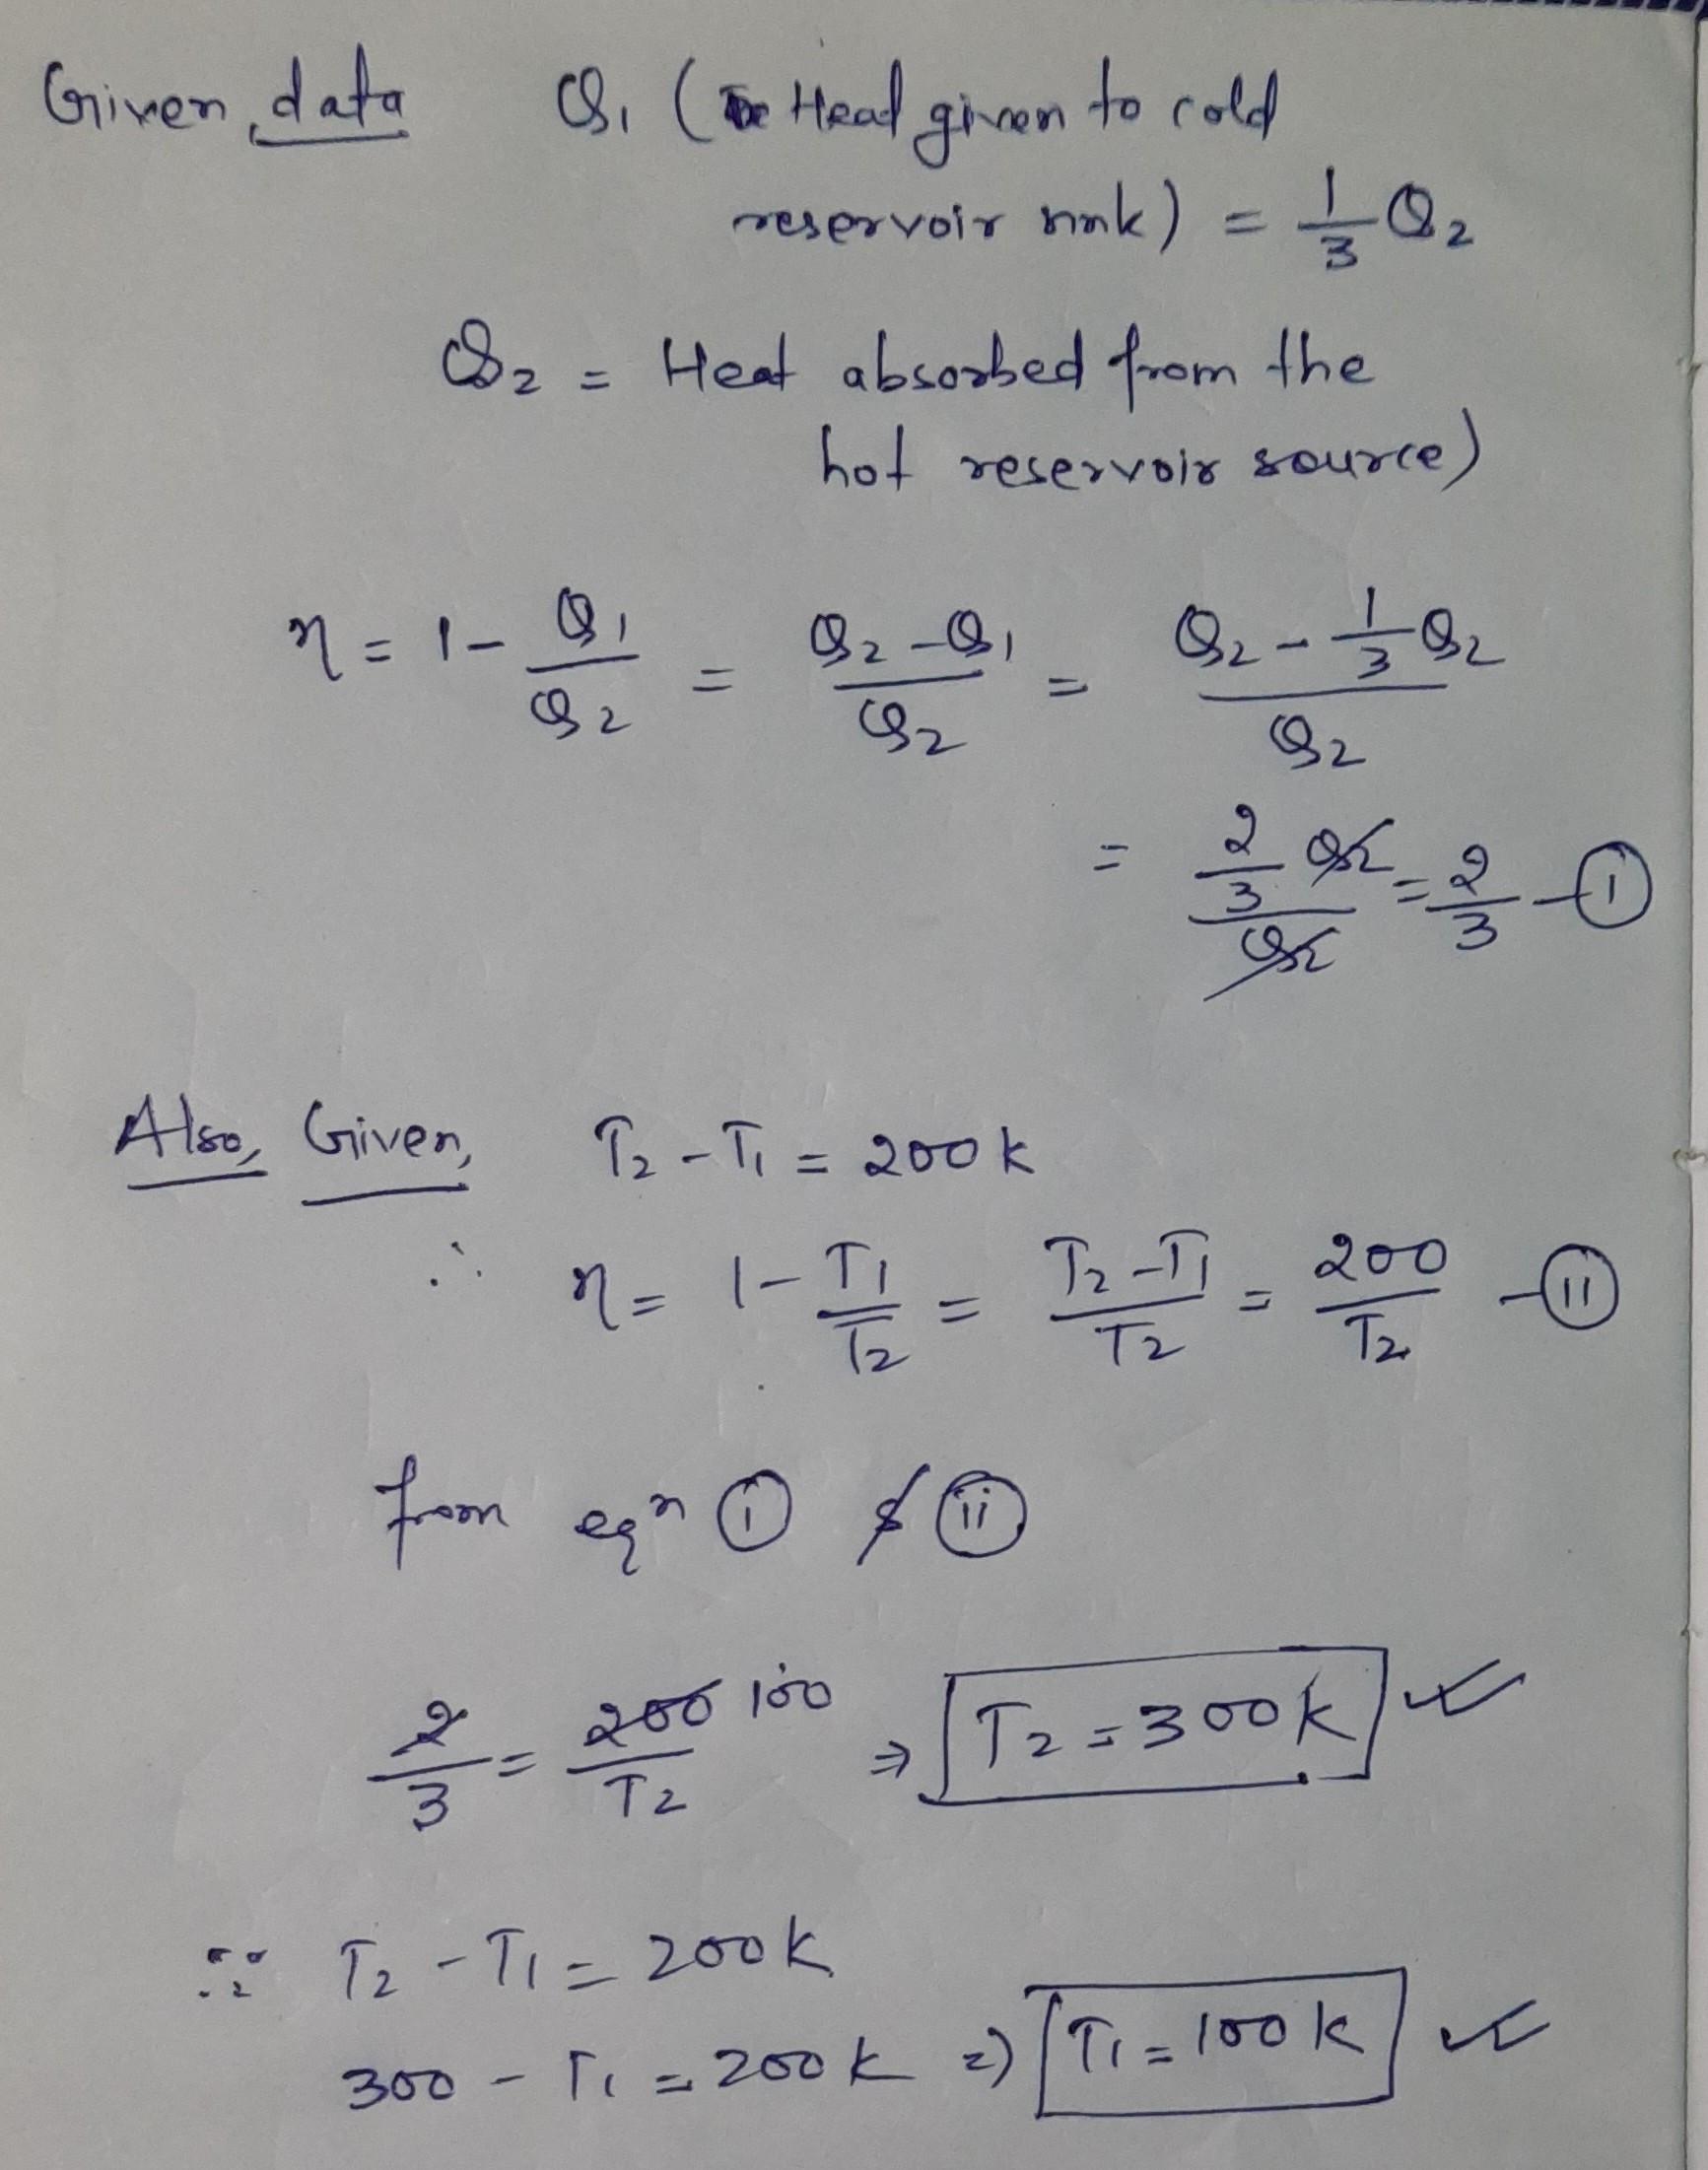 Given data Q₁ (Heat given to cold
reservoir sink) = 1/3 Q₂
Q₂ = Heat absorbed from the
hot reservoir source)
η = 1 - Q₁/Q₂ = (Q₂ - Q₁)/Q₂ = (Q₂ - 1/3 Q₂)/Q₂
= (2/3 Q₂)/Q₂ = 2/3 - (i)
Also, Given, T₂ - T₁ = 200 k
∴ η = 1 - T₁/T₂ = (T₂ - T₁)/T₂ = 200/T₂ - (ii)
from eqⁿ (i) & (ii)
2/3 = 200/T₂ 100 ⇒ T₂ = 300 k
∵ T₂ - T₁ = 200 k
300 - T₁ = 200 k ⇒ T₁ = 100 k